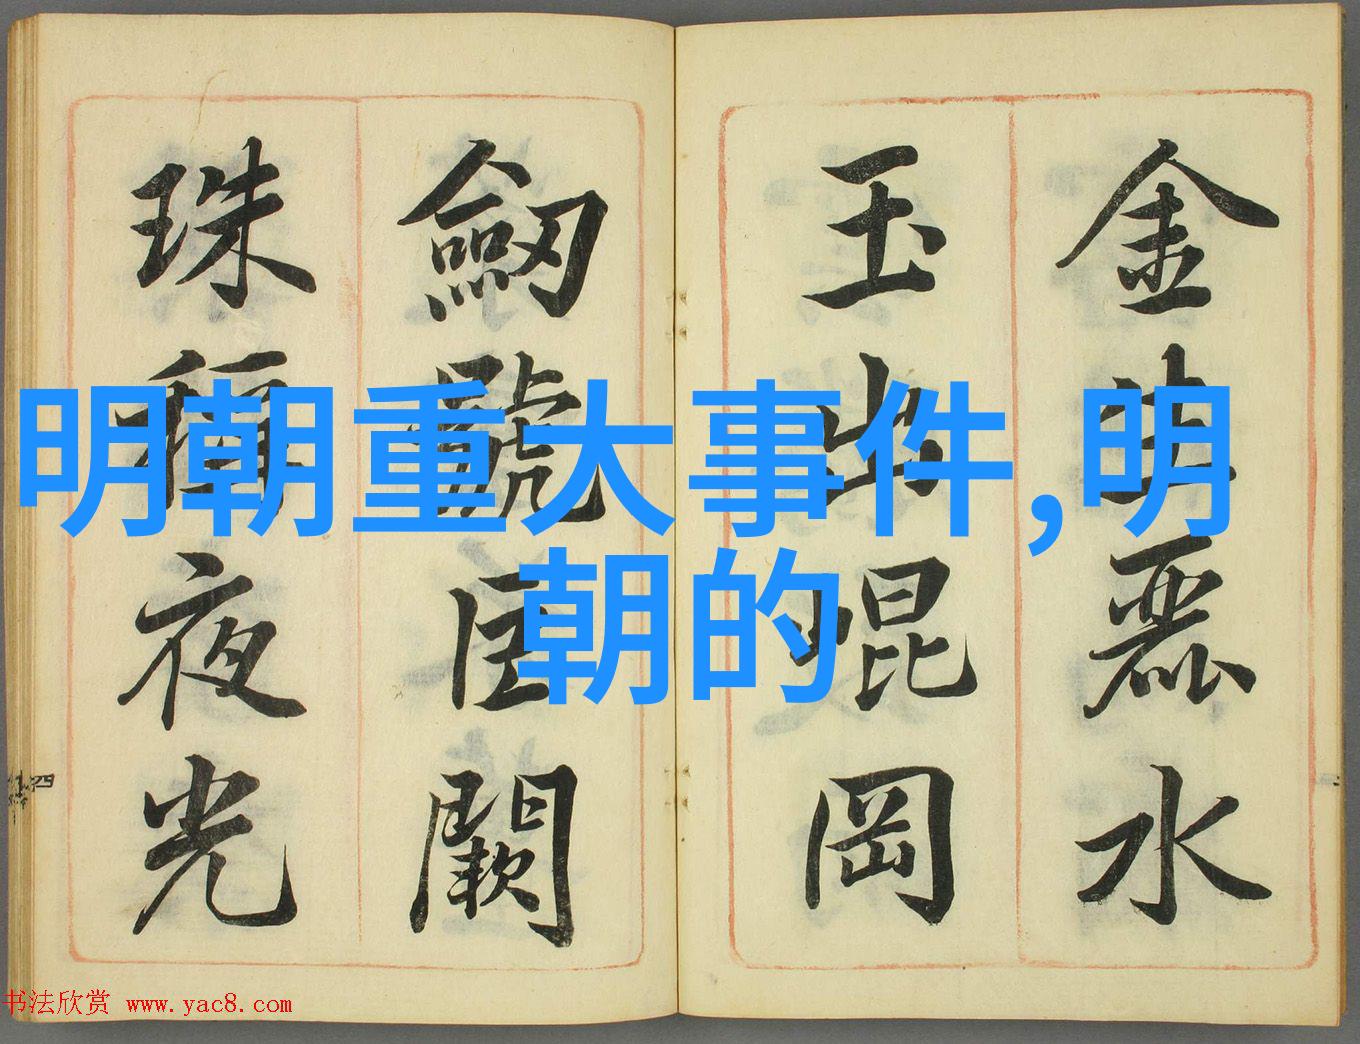 金生麗水
玉出崐岡
劒號巨闕
珠稱夜光
明朝重大事件,明
朝的
四
书法欣赏 www.yac8.com